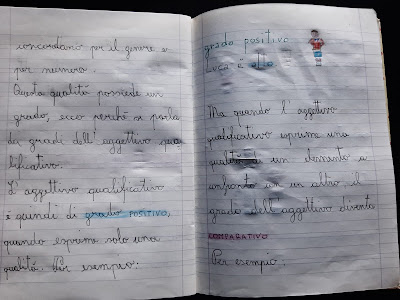 concordano per il genere e
per numero.
Questa qualità possiede un
grado, ecco perché si parla
di gradi dell'aggettivo qua
lificativo.
L'aggettivo qualificativo
è quindi di grado POSITIVO,
quando esprime solo una
qualità. Per esempio:
grado positivo
LUCA È alto
Ma quando l'aggettivo
qualificativo esprime una
qualità di un elemento a
confronto con un altro, il
grado dell'aggettivo diventa
COMPARATIVO
Per esempio.